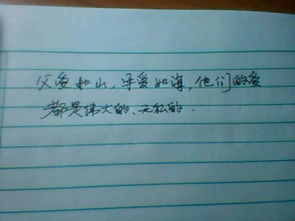 父爱如山，母爱如海，他们的爱
都是伟大的、无私的.